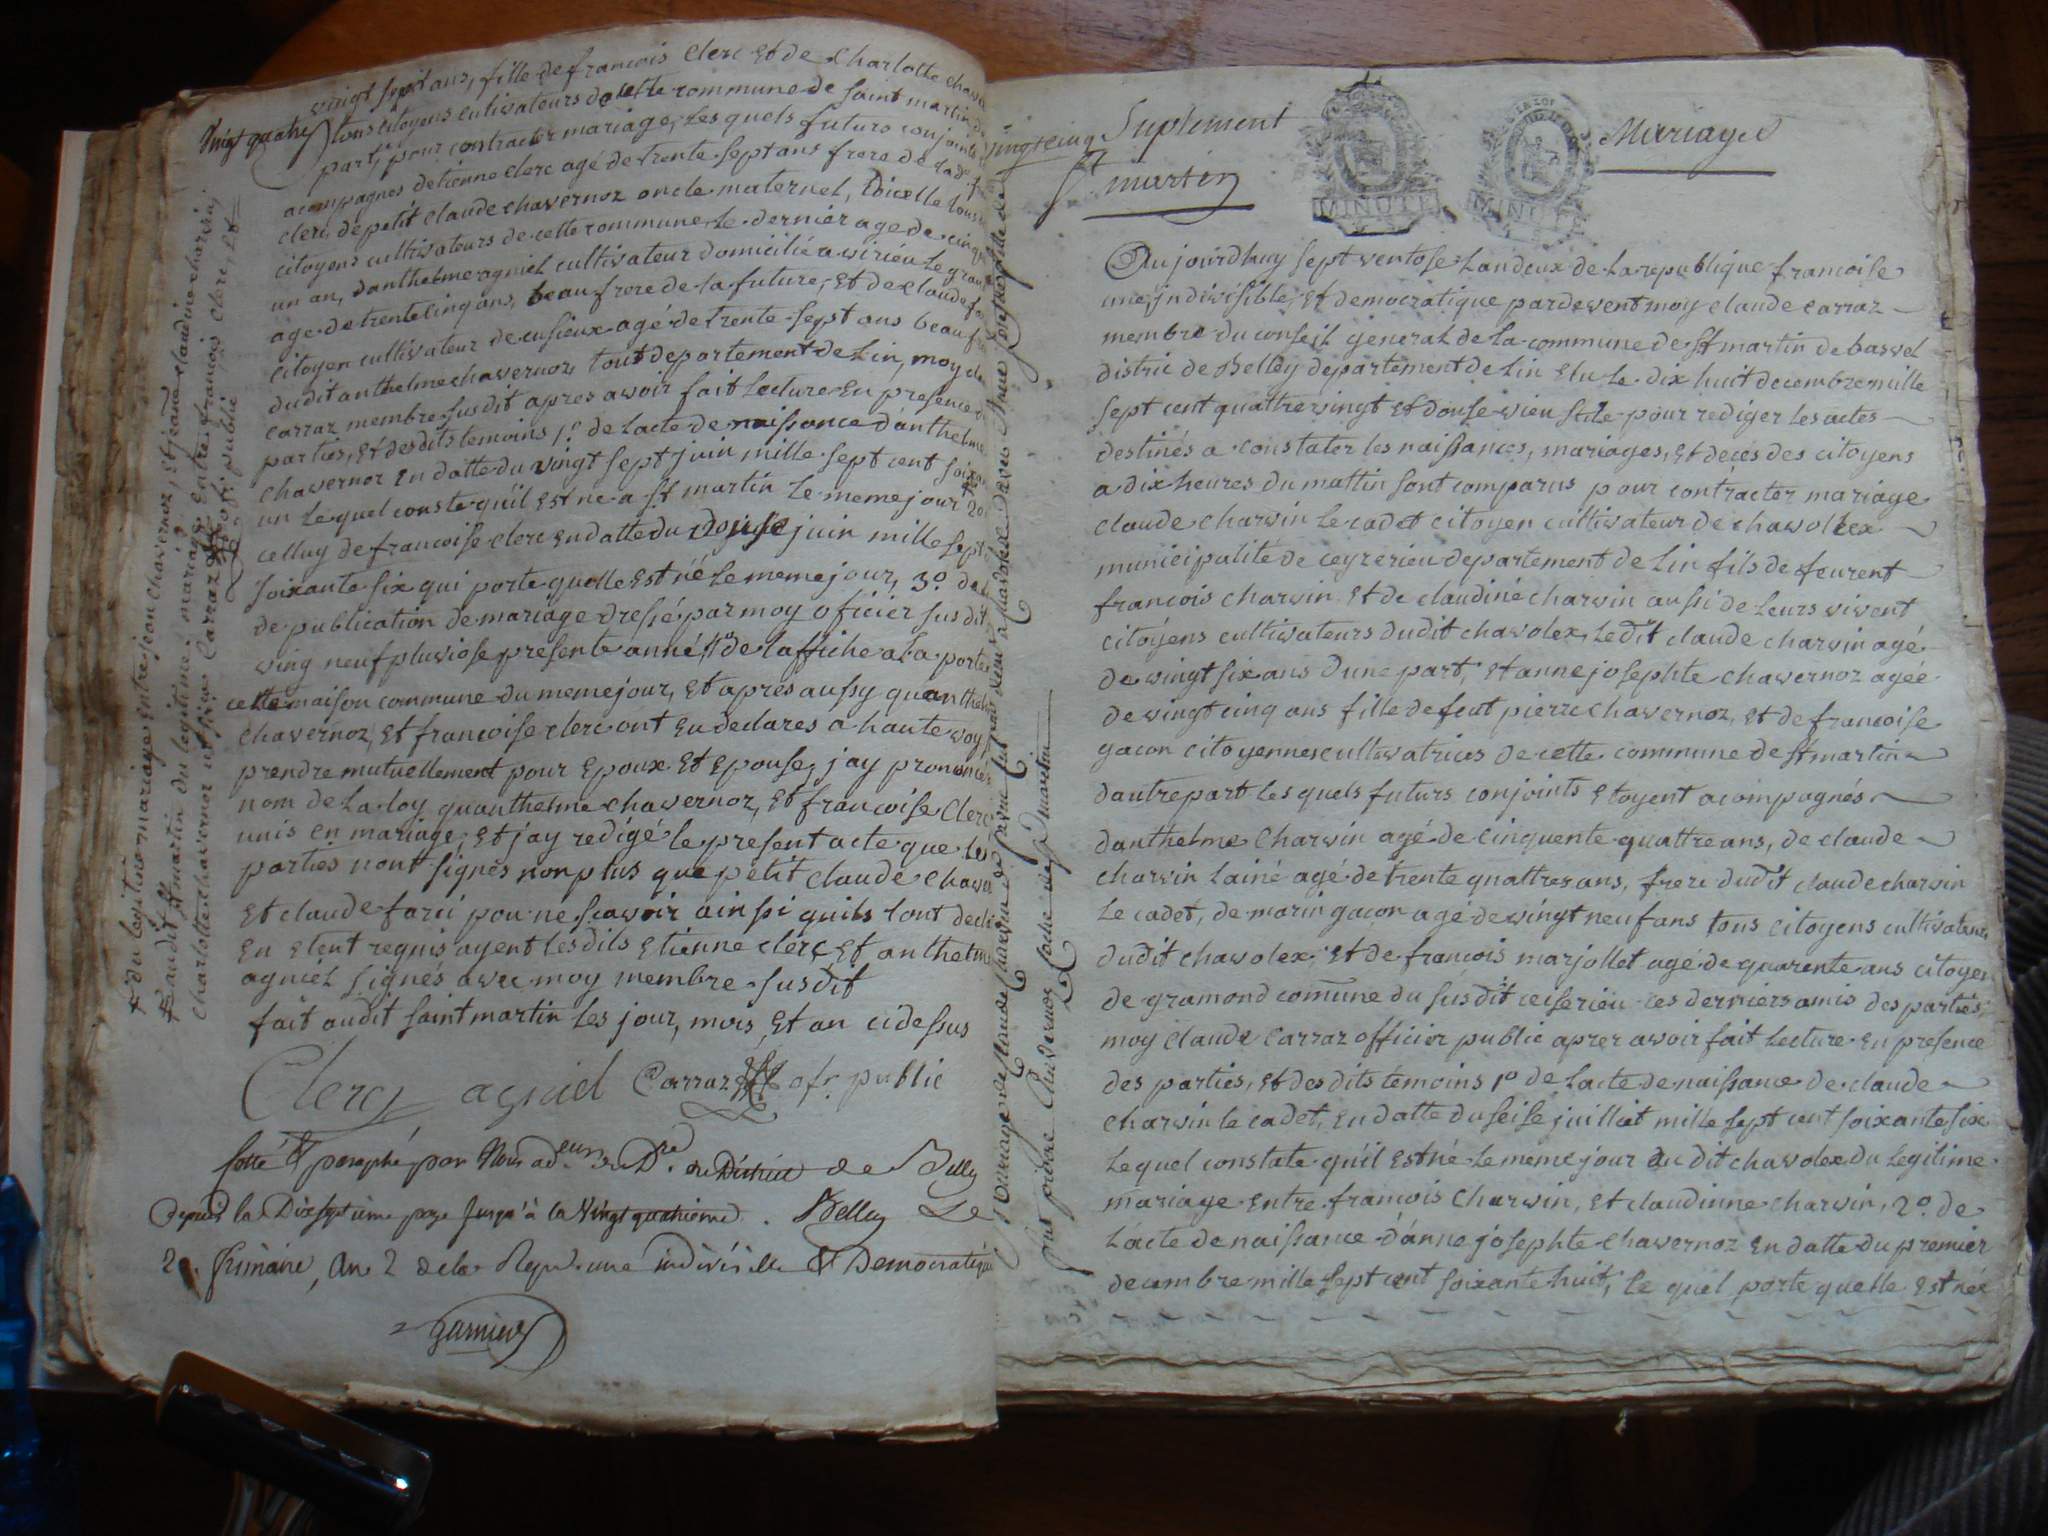 vingt sept ans, fille de francois Clerc Et de Charlotte chav
vingt quatre tous citoyens cultivateurs de cette commune de saint martin
part, pour contracter mariage, les quels futurs conjoints
acompagnes detienne clerc agé de trente sept ans frere de lad.
clerc, de petit claude chavernoz oncle maternel, dicelle tous
citoyens cultivateurs de cette commune le dernier age de cinq
un an, danthelme agniel cultivateur domicilié a virieu le grand
age de trente cinq ans, beau frere de la future, Et de claude fa
citoyen cultivateur de cusieux agé de trente sept ans beau f
dudit anthelme chavernoz, tout departement de Lin, moy cl
carraz membre susdit apres avoir fait lecture En presence
parties, Et desdits temoins 1.º de lacte de naissance danthelme
chavernoz En datte du vingt sept juin mille sept cent soixa
un le quel conste quil Est ne a St martin le meme jour 2º
celluy de francoise clerc En datte du douse juin mille sept
soixante six qui porte quelle Est né le meme jour, 3º. de
de publication de mariage dressé par moy officier susdit
ving neuf pluviose presente anné, 4º de laffiche a la porte
cette maison commune du meme jour, Et apres aussy quanthel
chavernoz, Et francoise clerc ont Eu declares a haute voy
prendre mutuellement pour Epoux Et Epouse, jay prononce
nom de la loy quanthelme chavernoz, Et francoise Clerc
unis en mariage, Et jay redigé le present acte que les
parties nont signés non plus que petit claude chaver
Et claude farci pou ne scavoir ainsi quils lont decl
En Etent requis ayent lesdits Etienne clerc Et anthelme
agniel signés avec moy membre susdit
fait audit saint martin les jour, mois, Et an cidessus
Clerc agniel Carraz ofr. public
Cotté & paraphé par Nous de Belley
Depuis la Dixseptieme page jusqu'à la Vingt quatrieme. Belley Le
frimaire, An 2 de la Repu. une indivisible & Democratiqu
garnier
+ du legitime mariage Entre jean chavernoz, Et jeane claudine charvin
+ audit St martin du legitime mariage Entre francois clerc, Et
charlotte chavernoz Carraz ofr. public
vingt cinq Suplement
St martin
MINUTE
MINUTE
Mariage
Mariage de claude charvin de avec Anne josephte fille de
feut pierre Chavernoz St martin
Aujourdhuy sept ventose landeux de la republique francoise
une, indivisible, Et democratique pardevent moy claude carraz
membre du conseil general de la commune de St martin de bavel
distric de Belley departement de Lin Elu le dix huit decembre mille
sept cent quattre vingt Et douse vieu stile pour rediger les actes
destinés a constater les naissances, mariages, Et deces des citoyens
a dix heures du mattin sont comparus pour contracter mariage
claude charvin le cadet citoyen cultivateur de chavolex
municipalité de ceyzerieu departement de Lin fils de feurent
francois charvin Et de claudine charvin aussi de leurs vivent
citoyens cultivateurs dudit chavolex, ledit claude charvin agé
de vingt six ans dune part, Et anne josephte chavernoz ageé
de vingt cinq ans fille de feut pierre chavernoz, Et de francoise
gacon citoyennes cultivatrices de cette commune de St martin
dautre part les quels futurs conjoints Etoyent acompagnés
danthelme charvin agé de cinquente quattre ans, de claude
charvin lainé agé de trente quattres ans, frere dudit claude charvin
le cadet, de marin gacon agé de vingt neuf ans tous citoyens cultivateurs
dudit chavolex, Et de francois marjollet agé de quarente ans citoyen
de gramond comune du susdit ceiserieu ces derniers amis des parties,
moy claude carraz officier public aprer avoir fait lecture En presence
des parties, Et des dits temoins 1º de lacte de naissance de claude
charvin le cadet, En datte du seise juilliat mille sept cent soixante six
lequel constate quil Est né le meme jour au dit chavolex du legitime
mariage Entre francois charvin, Et claudinne charvin, 2º. de
lacte de naissance danne josephte chavernoz En datte du premier
decembre mille sept cent soixante huit, le quel porte quelle Est née